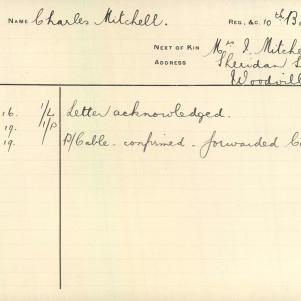 NAME Charles Mitchell. REG., &C. 10th B
NEXT OF KIN Mrs I. Mitche
ADDRESS Sheridan S
Woodvill
16. 1/L Letter acknowledged.
19. 1/P
19. P/Cable - confirmed - forwarded